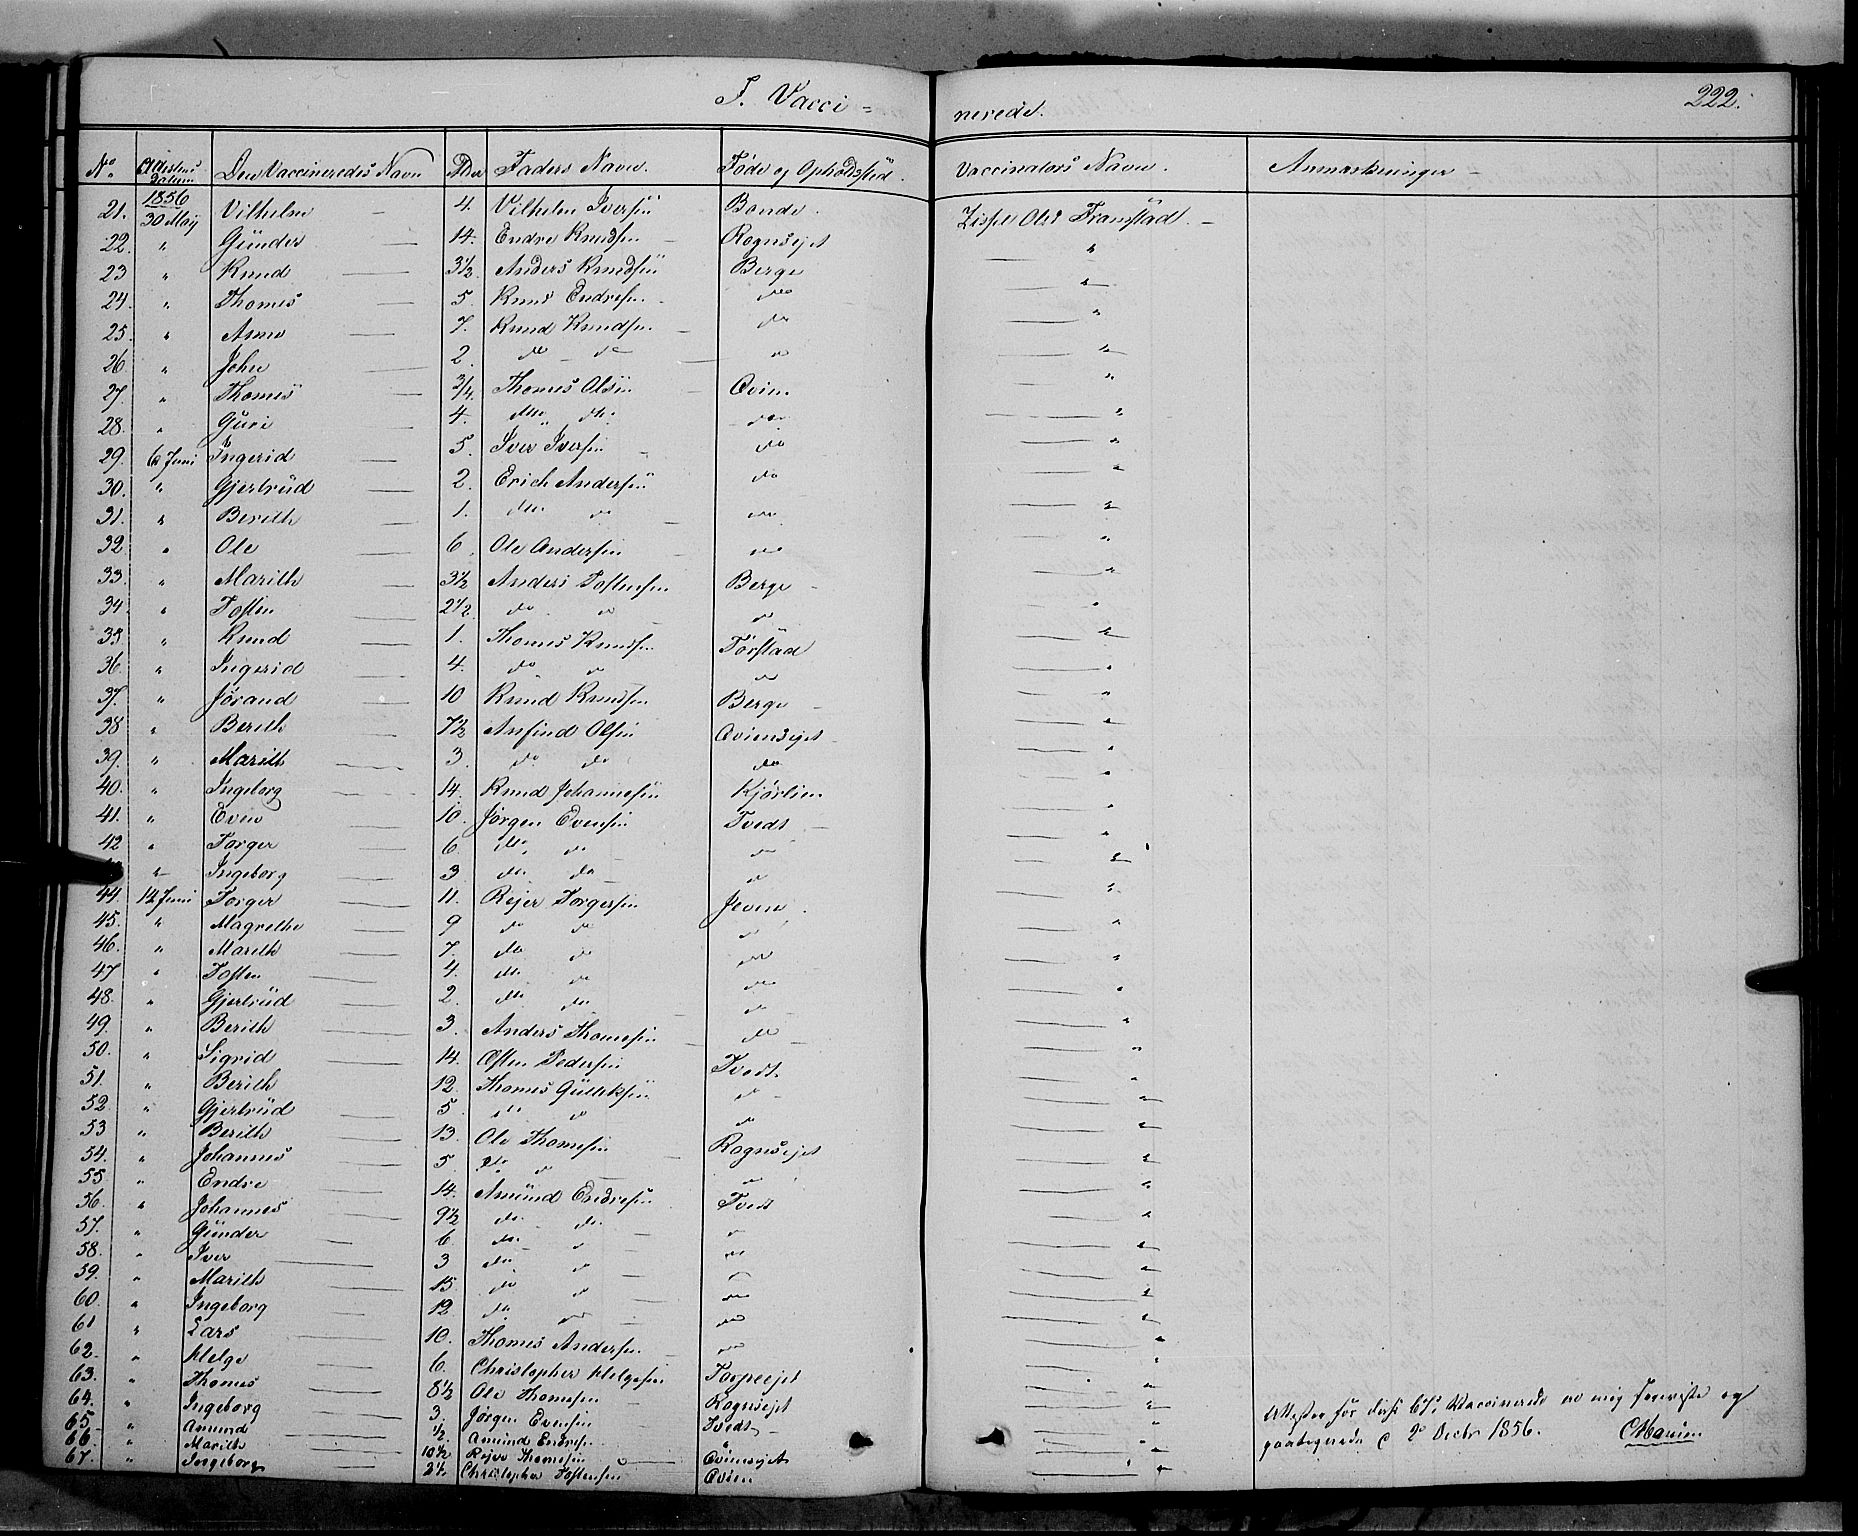 I. Vacci = nerede. 222.
No. Attestens Datum Den Vaccineredes Navn Alder Faders Navn. Føde og Opholdsted. Vaccinators Navn. Anmærkninger
1856
21. 30 May Vilhelm 4. Vilhelm Iversen Bonde. Ole Framstad.
22. " Gunder 14. Endre Knudsen Rognsejet "
23 " Knud 3 1/2. Anders Knudsen Berge "
24. " Thomes 5. Knud Endresen do "
25. " Arne 7. Knud Knudsen do "
26. " John 2. do do do "
27. " Thomes 3/4. Thomes Olsen Qvien "
28. " Guri 4. do do do "
29. 6 Juni Ingerid 5. Iver Iversen do "
30. " Gjertrud 2. Erich Andersen do "
31. " Berith 1. do do do "
32. " Ole 6. Ole Andersen do "
33. " Marith 3 1/2 Anders Tostensen Berge "
34. " Tosten 2 1/2. do do do "
35. " Knud 1. Thomes Knudsen Førstad "
36. " Ingerid 4. do do do "
37. " Jørand 10 Knud Knudsen Berge "
38 " Berith 7 1/2 Anfind Olsen Qviensejet "
39. " Marith 3. do do do "
40. " Ingeborg 14. Knud Johannesen Kjørlien "
41. " Even 10. Jørgen Evensen Tvedt "
42 " Torger 6. do do do "
" Ingeborg 3 do do do "
44. 14 Juni Torger 11. Rejer Torgersen Jeven. "
45. " Magrethe 9 do do do "
46. " Marith 7. do do do "
47 " Tosten 4. do do do "
48. " Gjertrud 2. do do do "
49. " Berith 3. Anders Thomesen do "
50. " Sigrid 14. Østen Pedersen Tvedt. "
51. " Berith 12. Thomes Gulliksen do "
52 " Gjertrud 5. do do do "
53 " Berith 13. Ole Thomesen Rognsejet "
54. " Johannes 5 do do do "
55 " Endre 14. Amund Endresen Tvedt "
56. " Johannes 9 1/2 do do " "
57. " Gunder 6 do do do "
58. " Iver 3 do do do "
59. " Marith 15 do do do "
60. " Ingeborg 12 do do do "
61 " Lars 10. Thomes Andersen do "
62. " Helge 6. Christopher Helgesen Torpeejet "
63. " Thomes 8 1/2 Ole Thomesen Rognsejet "
64. " Ingeborg 3. Jørgen Evensen Tvedt "
65. " Amund 1/2 Amund Endresen "
66 " Marith 10 1/2 Rejer Thomesen Qviensejet "
67. " Ingeborg 2 1/2 Christopher Tostensen Qvien "
Attester for disse 67 Vaccinerede ere mig foreviste og
paategnede d 2 Decbr 1856.